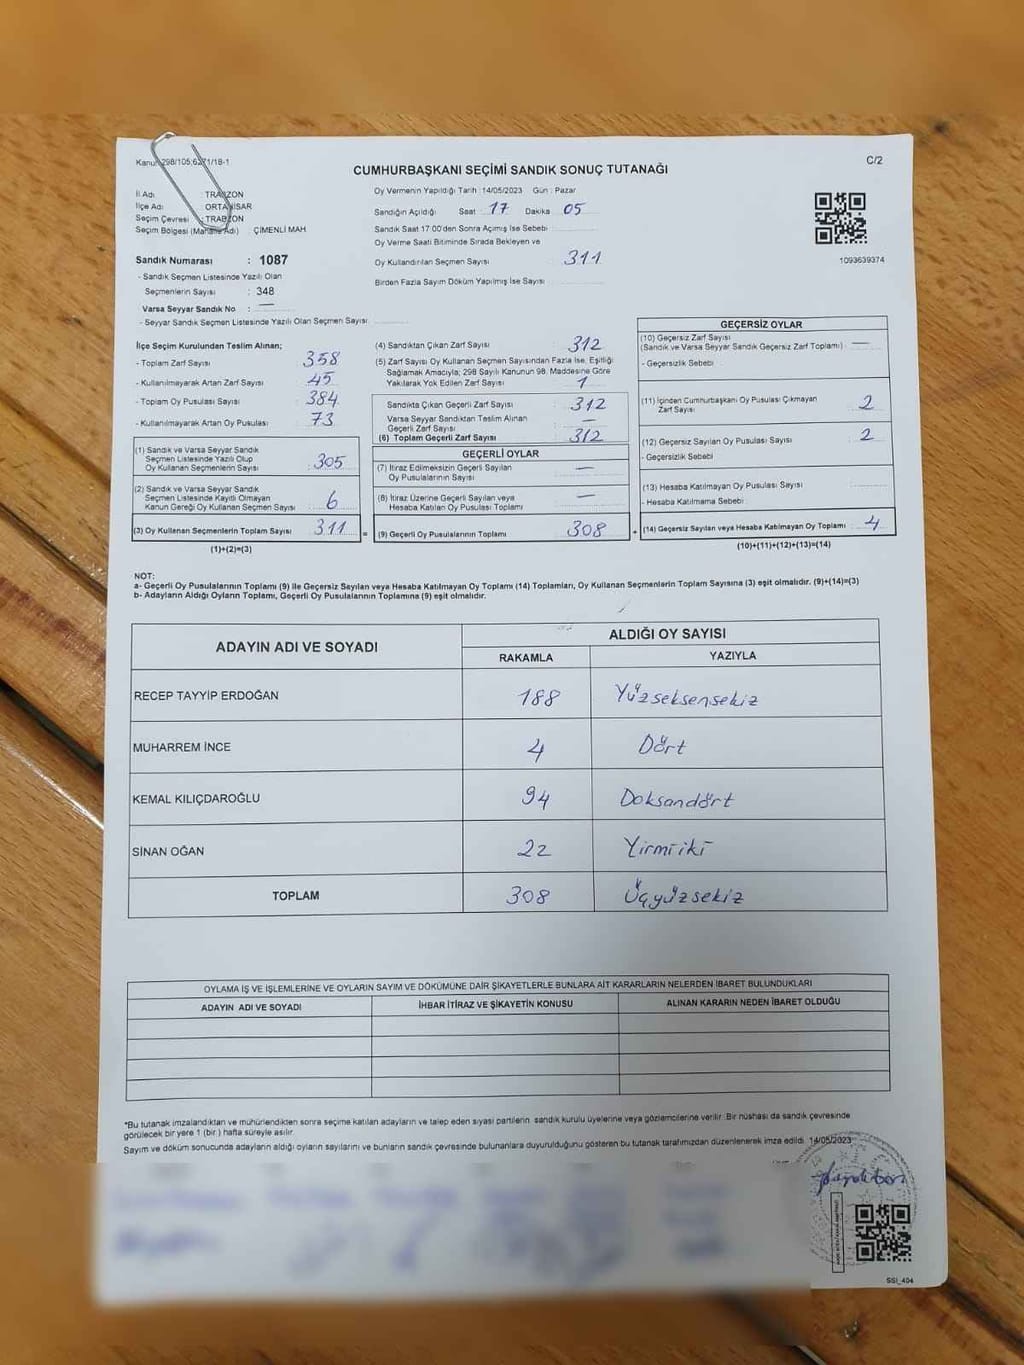 Kanun: 298/105;6271/18-1
C/2
CUMHURBAŞKANI SEÇİMİ SANDIK SONUÇ TUTANAĞI
İl Adı : TRABZON
İlçe Adı : ORTAHİSAR
Seçim Çevresi : TRABZON
Seçim Bölgesi (Mahalle Adı) : ÇİMENLİ MAH
Sandık Numarası : 1087
- Sandık Seçmen Listesinde Yazılı Olan
Seçmenlerin Sayısı : 348
Varsa Seyyar Sandık No : —
- Seyyar Sandık Seçmen Listesinde Yazılı Olan Seçmen Sayısı
Oy Vermenin Yapıldığı Tarih : 14/05/2023 Gün : Pazar
Sandığın Açıldığı Saat 17 Dakika 05
Sandık Saat 17:00'den Sonra Açılmış İse Sebebi :
Oy Verme Saati Bitiminde Sırada Bekleyen ve
Oy Kullandırılan Seçmen Sayısı 311
Birden Fazla Sayım Döküm Yapılmış İse Sayısı :
1093639374
İlçe Seçim Kurulundan Teslim Alınan;
- Toplam Zarf Sayısı : 358
- Kullanılmayarak Artan Zarf Sayısı : 45
- Toplam Oy Pusulası Sayısı : 384
- Kullanılmayarak Artan Oy Pusulası : 73
(1) Sandık ve Varsa Seyyar Sandık
Seçmen Listesinde Yazılı Olup
Oy Kullanan Seçmenlerin Sayısı : 305
(2) Sandık ve Varsa Seyyar Sandık
Seçmen Listesinde Kayıtlı Olmayan
Kanun Gereği Oy Kullanan Seçmen Sayısı : 6
(3) Oy Kullanan Seçmenlerin Toplam Sayısı : 311
(1)+(2)=(3)
(4) Sandıktan Çıkan Zarf Sayısı : 312
(5) Zarf Sayısı Oy Kullanan Seçmen Sayısından Fazla İse, Eşitliği
Sağlamak Amacıyla; 298 Sayılı Kanunun 98. Maddesine Göre
Yakılarak Yok Edilen Zarf Sayısı : 1
Sandıkta Çıkan Geçerli Zarf Sayısı : 312
Varsa Seyyar Sandıktan Teslim Alınan
Geçerli Zarf Sayısı : —
(6) Toplam Geçerli Zarf Sayısı : 312
GEÇERLİ OYLAR
(7) İtiraz Edilmeksizin Geçerli Sayılan
Oy Pusulalarının Sayısı : —
(8) İtiraz Üzerine Geçerli Sayılan veya
Hesaba Katılan Oy Pusulası Toplamı : —
= (9) Geçerli Oy Pusulalarının Toplamı : 308
GEÇERSİZ OYLAR
(10) Geçersiz Zarf Sayısı
(Sandık ve Varsa Seyyar Sandık Geçersiz Zarf Toplamı) : —
- Geçersizlik Sebebi :
(11) İçinden Cumhurbaşkanı Oy Pusulası Çıkmayan
Zarf Sayısı : 2
(12) Geçersiz Sayılan Oy Pusulası Sayısı : 2
- Geçersizlik Sebebi :
(13) Hesaba Katılmayan Oy Pusulası Sayısı :
- Hesaba Katılmama Sebebi :
+ (14) Geçersiz Sayılan veya Hesaba Katılmayan Oy Toplamı : 4
(10)+(11)+(12)+(13)=(14)
NOT:
a- Geçerli Oy Pusulalarının Toplamı (9) ile Geçersiz Sayılan veya Hesaba Katılmayan Oy Toplamı (14) Toplamları, Oy Kullanan Seçmenlerin Toplam Sayısına (3) eşit olmalıdır. (9)+(14)=(3)
b- Adayların Aldığı Oyların Toplamı, Geçerli Oy Pusulalarının Toplamına (9) eşit olmalıdır.
ADAYIN ADI VE SOYADI
ALDIĞI OY SAYISI
RAKAMLA YAZIYLA
RECEP TAYYİP ERDOĞAN 188 Yüzseksensekiz
MUHARREM İNCE 4 Dört
KEMAL KILIÇDAROĞLU 94 Doksandört
SİNAN OĞAN 22 Yirmiiki
TOPLAM 308 Üçyüzsekiz
OYLAMA İŞ VE İŞLEMLERİNE VE OYLARIN SAYIM VE DÖKÜMÜNE DAİR ŞİKAYETLERLE BUNLARA AİT KARARLARIN NELERDEN İBARET BULUNDUKLARI
ADAYIN ADI VE SOYADI İHBAR İTİRAZ VE ŞİKAYETİN KONUSU ALINAN KARARIN NEDEN İBARET OLDUĞU
*Bu tutanak imzalandıktan ve mühürlendikten sonra seçime katılan adayların ve talep eden siyasi partilerin sandık kurulu üyelerine veya gözlemcilerine verilir. Bir nüshası da sandık çevresinde
görülecek bir yere 1 (bir ) hafta süreyle asılır.
Sayım ve döküm sonucunda adayların aldığı oyların sayılarını ve bunların sandık çevresinde bulunanlara duyurulduğunu gösteren bu tutanak tarafımızdan düzenlenerek imza edildi. 14/05/2023
SSI_404